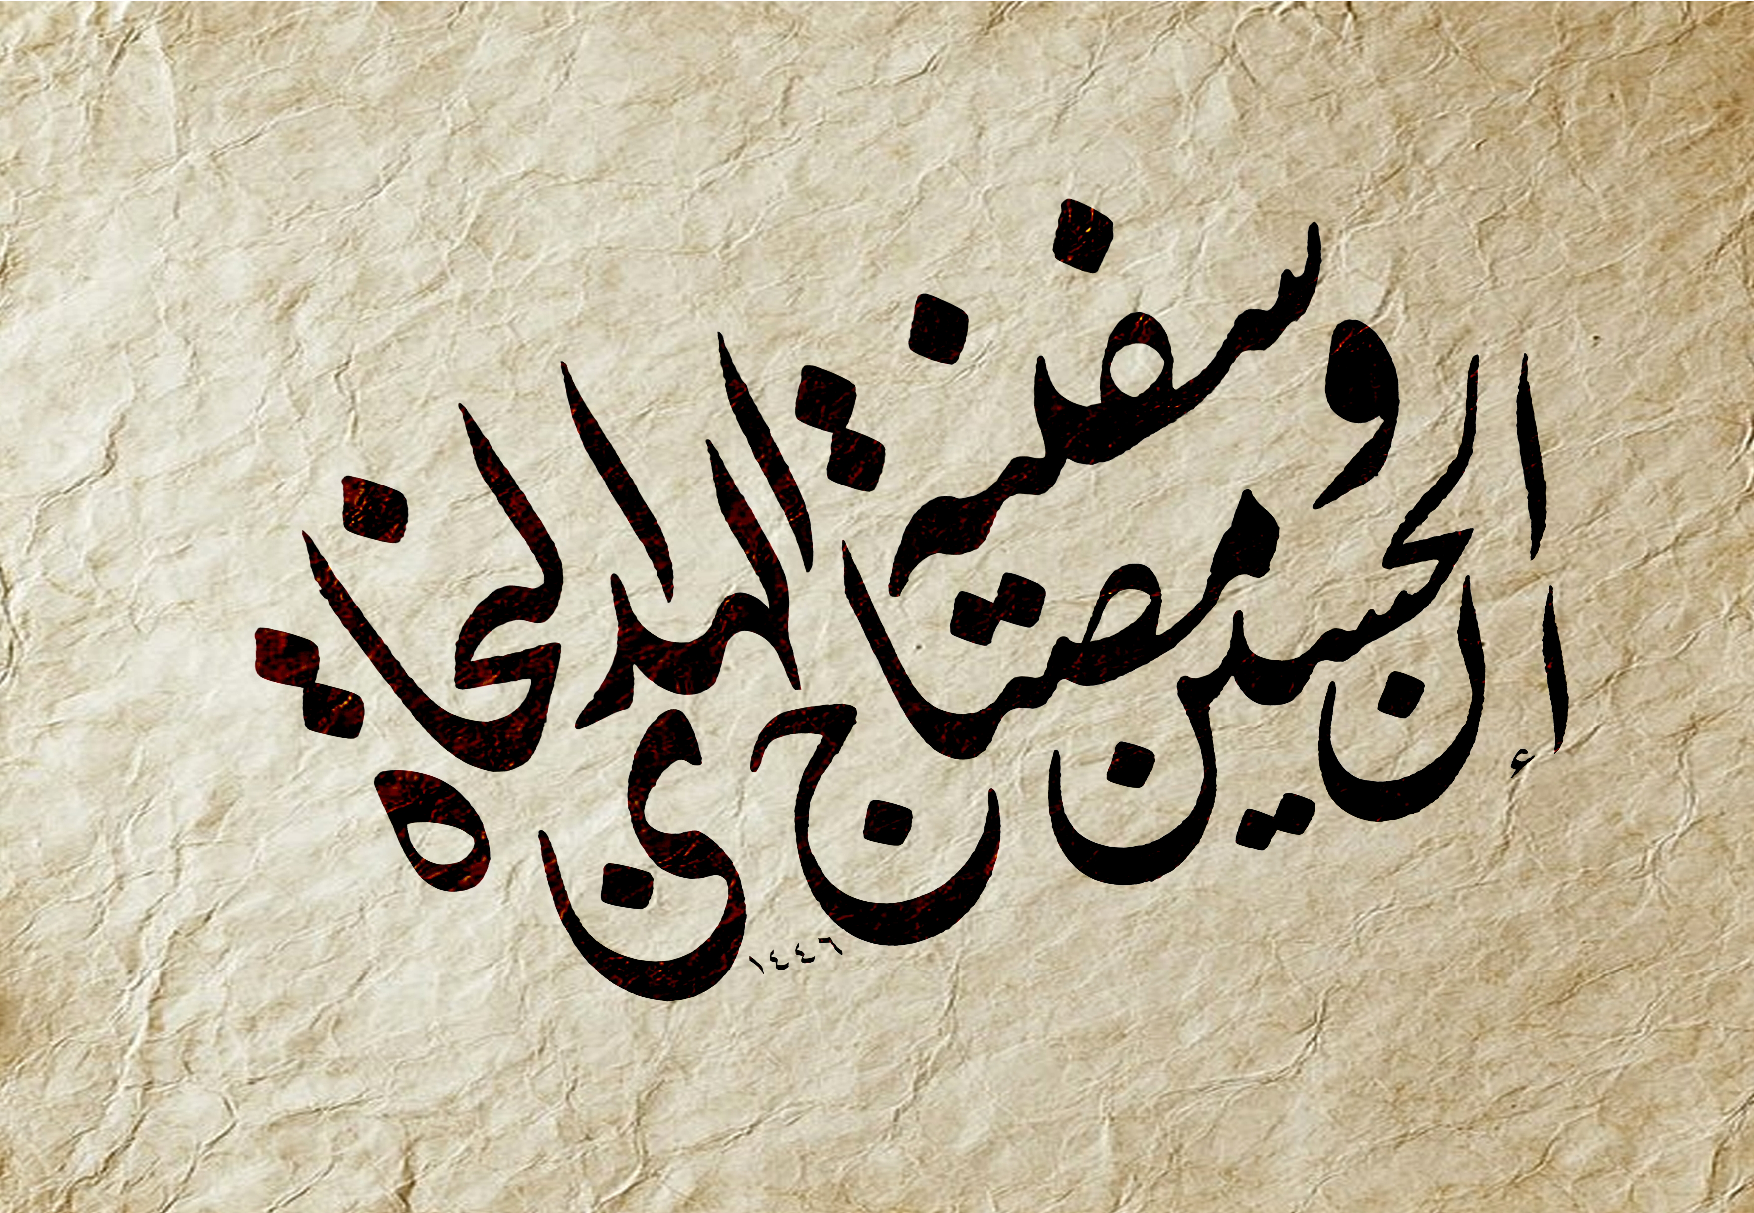 إن الحسين مصباح الهدى وسفينة النجاة
١٤٤٦